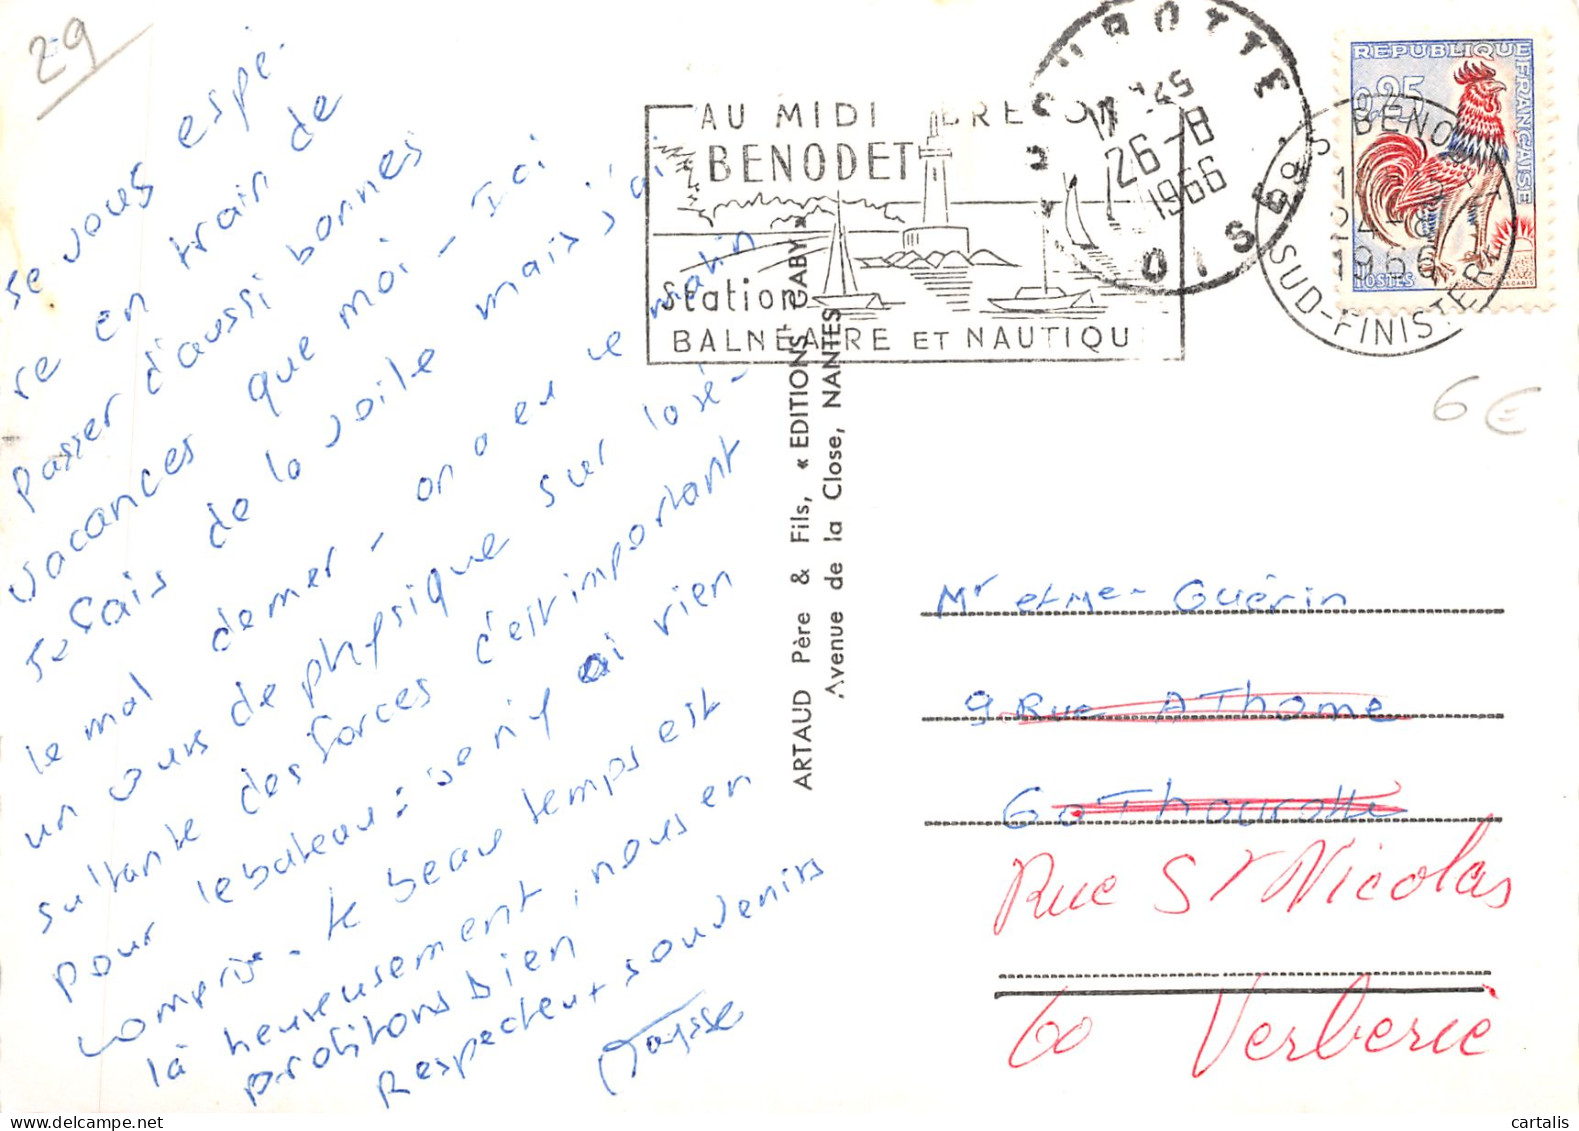 29
se vous espè-
re en train de
passer d'aussi bonnes
vacances que moi - Ici
je fais de la voile mais j'ai
le mal de mer - on a eu ce matin
un cours de physique sur la ré-
sultante des forces c'est important
pour le bateau : je n'y ai rien
compris - le beau temps est
là heureusement, nous en
profitons bien
Respectueux souvenirs
AU MIDI BRETON
BENODET
Station
BALNEAIRE ET NAUTIQU
THOUROTTE
26-8
1966
OISE
REPUBLIQUE FRANCAISE
0,25
POSTES
BENODET
1966
SUD-FINISTERE
6 €
ARTAUD Père & Fils, « EDITIONS GABY »
Avenue de la Close, NANTES
Mr et Me - Guérin
9 Rue AThome
60 Thourotte
Rue St Nicolas
60 Verberie
www.cartalis.com